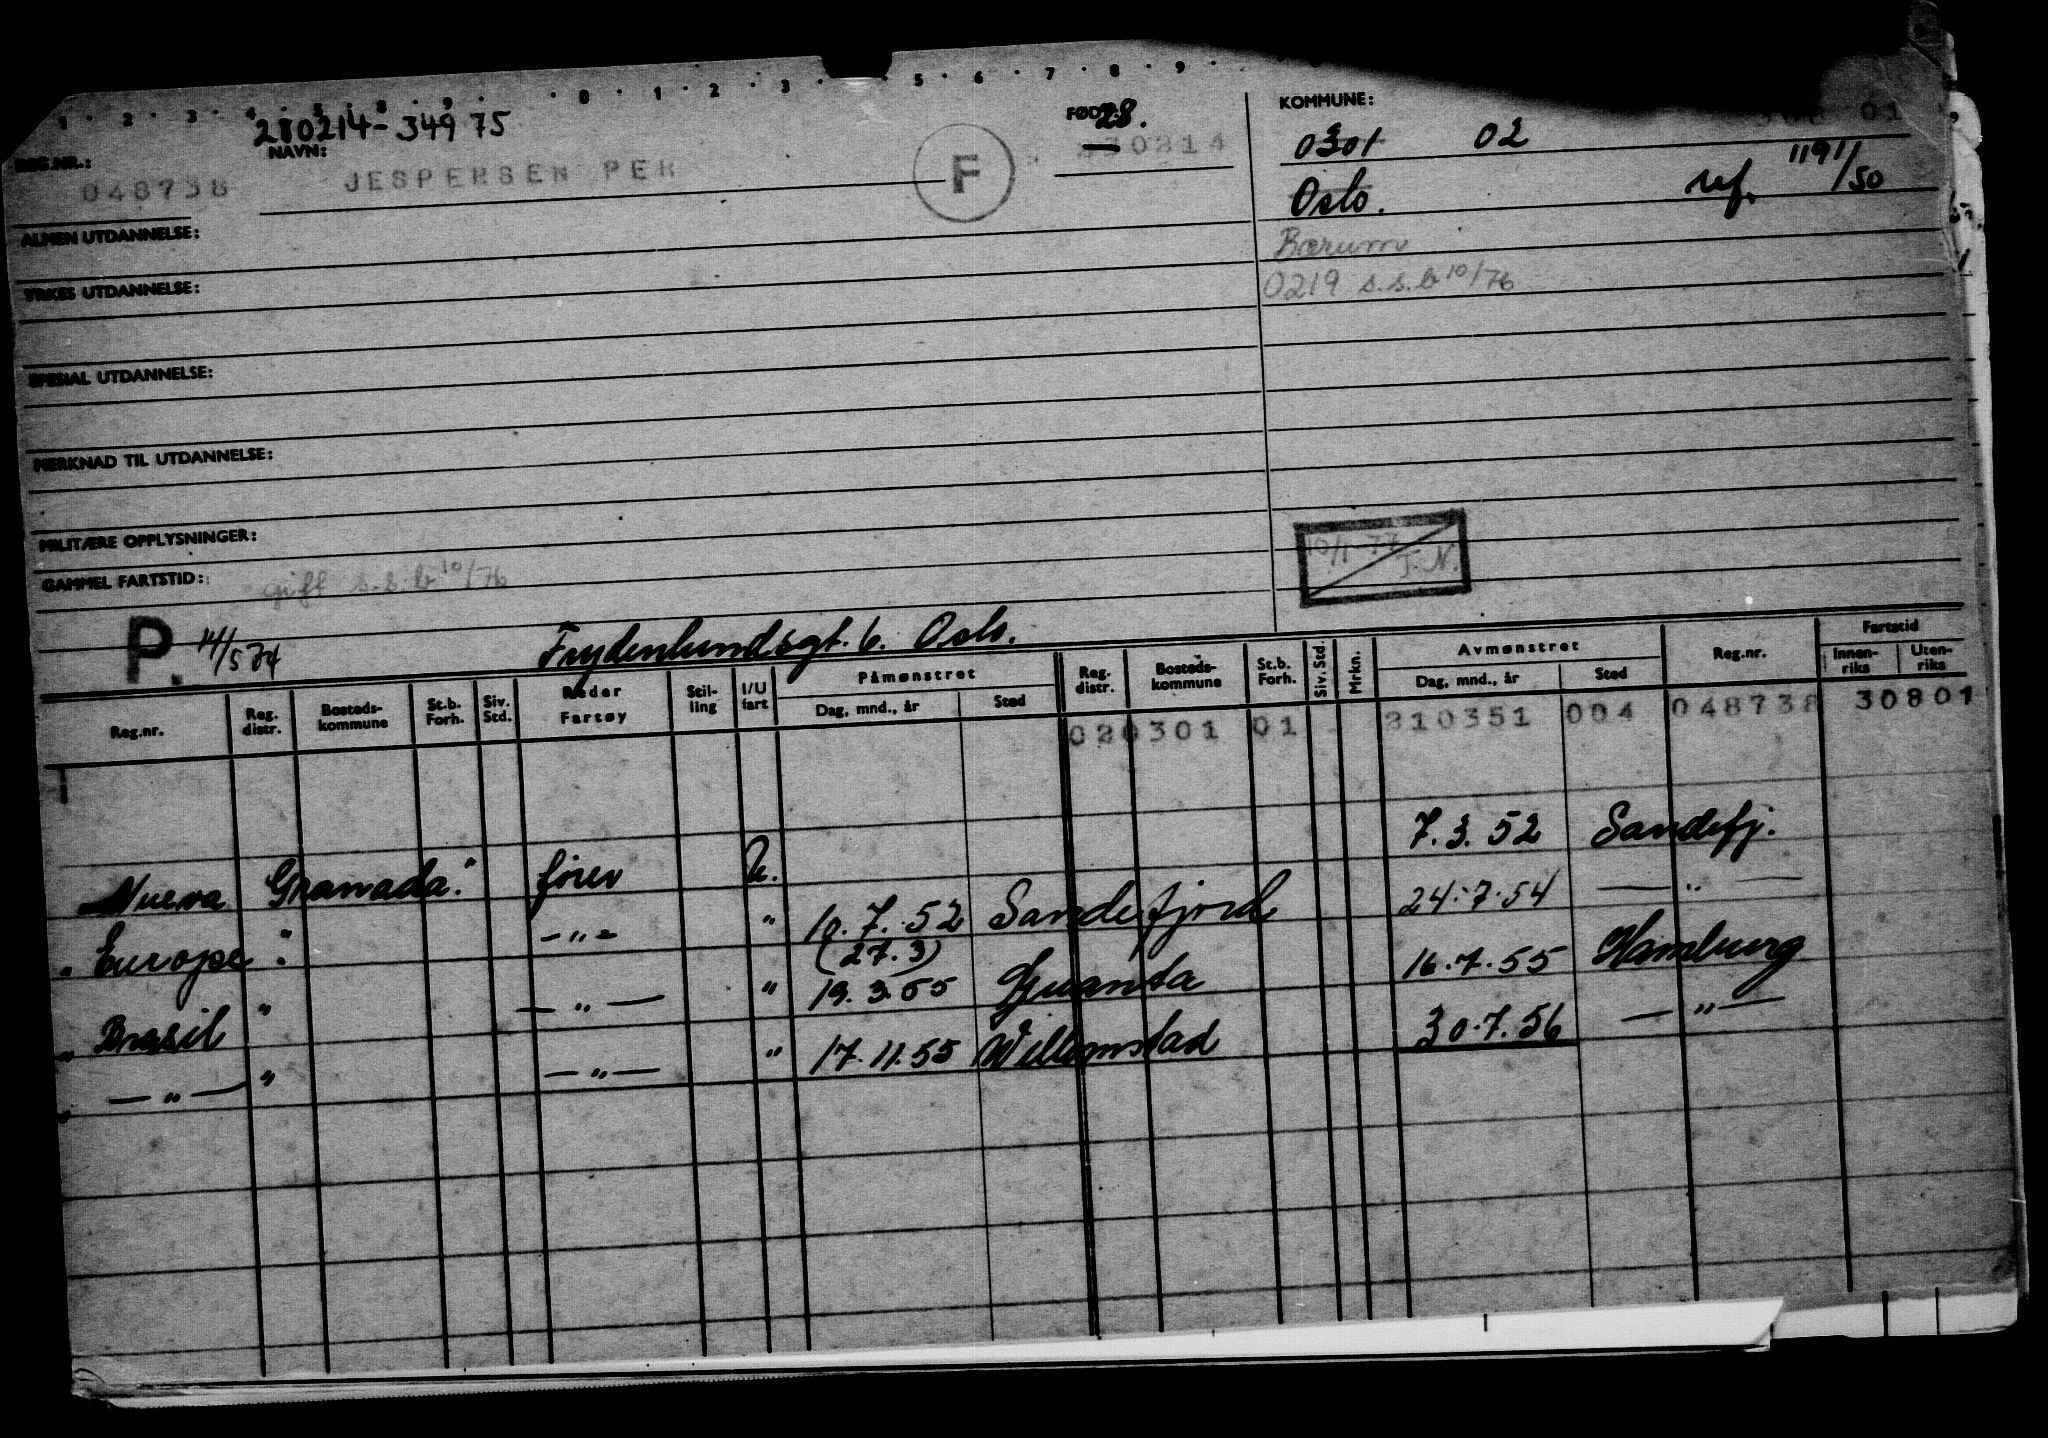 1 · 2 · 3 · 4 · 5 · 8 · 9 · · 0 · 1 · 2 · 3 · · 5 · 6 · 7 · 8 · 9 ·
280214-34975
REG.NR.: NAVN: FØDT: 28. KOMMUNE:
048738 JESPERSEN PER F 0214 0301 02 01
Oslo. ref. 1191/50
ALMEN UTDANNELSE: Bærum
YRKES UTDANNELSE: 0219 s.s.b 10/76
SPESIAL UTDANNELSE:
MERKNAD TIL UTDANNELSE:
MILITÆRE OPPLYSNINGER: 10/1-77 T.N.
GAMMEL FARTSTID: gift s.s.b 10/76
P. 14/5 74 Frydenlundsgt. 6. Oslo.
Reg.nr. Reg. distr. Bosteds-kommune St.b. Forh. Siv. Std. Reder Fartøy Stil-ling I/U fart Påmønstret Dag, mnd., år Sted Reg. distr. Bosteds-kommune St.b. Forh. Siv. Std. Mrkn. Avmønstret Dag, mnd., år Sted Reg.nr. Fartstid Innen-riks Uten-riks
020301 01 210351 004 048738 30801
Nueva Granada." fører U. 7.3.52 Sandefj.
" Europe". -"- " 10.7.52 Sandefjord 24.7.54 -"-
(27.3)
" Brasil " -"- " 19.3.55 Guanta 16.7.55 Hamburg
" -"- " -"- " 17.11.55 Willemstad 30.7.56 -"-